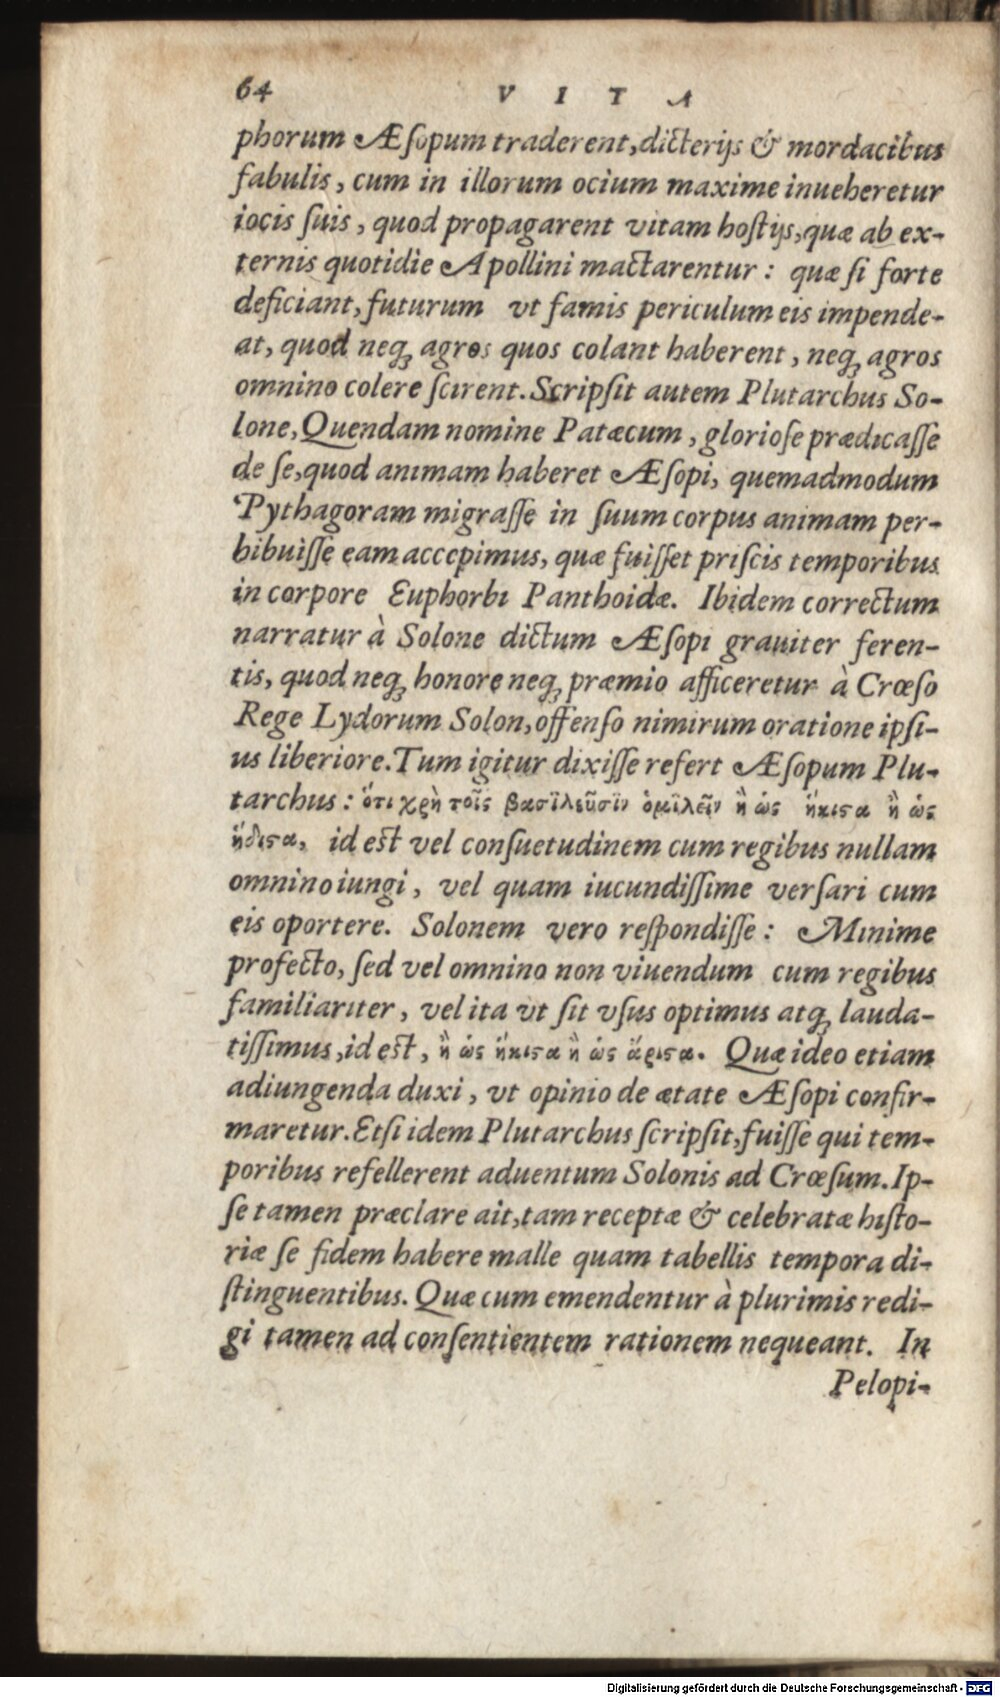 64 VITA
phorum Æſopum traderent, dicterijs & mordacibus
fabulis, cum in illorum ocium maxime inueheretur
iocis ſuis, quod propagarent vitam hoſtijs, quæ ab ex-
ternis quotidie Apollini mactarentur: quæ ſi forte
deficiant, futurum vt famis periculum eis impende-
at, quod neq; agros quos colant haberent, neq; agros
omnino colere ſcirent. Scripſit autem Plutarchus So-
lone, Quendam nomine Patæcum, glorioſe prædicaſſe
de ſe, quod animam haberet Æſopi, quemadmodum
Pythagoram migraſſe in ſuum corpus animam per-
hibuiſſe eam accepimus, quæ fuiſſet priſcis temporibus
in corpore Euphorbi Panthoidæ. Ibidem correctum
narratur à Solone dictum Æſopi grauiter feren-
tis, quod neq; honore neq; præmio afficeretur à Crœſo
Rege Lydorum Solon, offenſo nimirum oratione ipſi-
us liberiore. Tum igitur dixiſſe refert Æſopum Plu-
tarchus: ὅτι χρὴ τοῖς βασιλεῦσιν ὁμιλεῖν ἢ ὡς ἥκιϛα ἢ ὡς
ἥδιϛα, id eſt vel conſuetudinem cum regibus nullam
omnino iungi, vel quam iucundiſſime verſari cum
eis oportere. Solonem vero reſpondiſſe: Minime
profecto, ſed vel omnino non viuendum cum regibus
familiariter, vel ita vt ſit vſus optimus atq; lauda-
tiſſimus, id eſt, ἢ ὡς ἥκιϛα ἢ ὡς ἄριϛα. Quæ ideo etiam
adiungenda duxi, vt opinio de ætate Æſopi confir-
maretur. Etſi idem Plutarchus ſcripſit, fuiſſe qui tem-
poribus refellerent aduentum Solonis ad Crœſum. Ip-
ſe tamen præclare ait, tam receptæ & celebratæ hiſto-
riæ ſe fidem habere malle quam tabellis tempora di-
ſtinguentibus. Quæ cum emendentur à plurimis redi-
gi tamen ad conſentientem rationem nequeant. In
Pelopi-
Digitalisierung gefördert durch die Deutsche Forschungsgemeinschaft - DFG